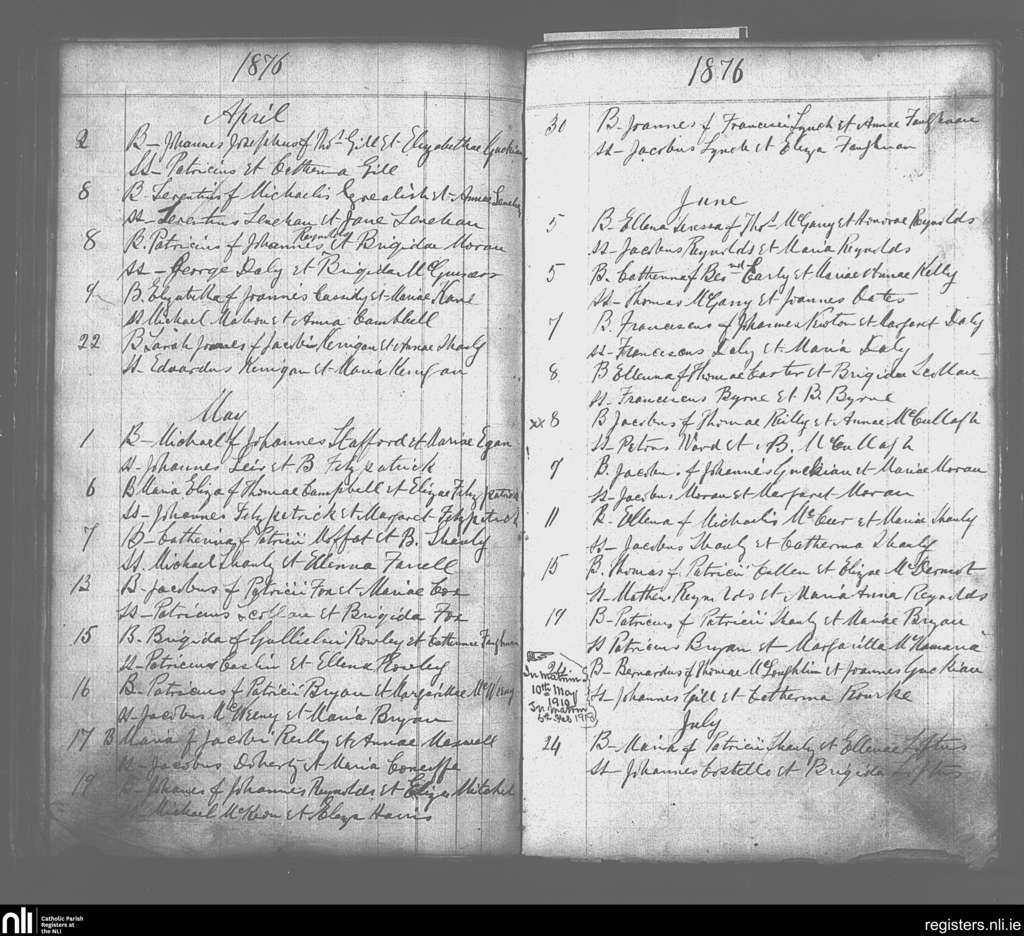 1876
April
2 B- Johannes Josephus f Thos Gill et Elizabethae Guckian
SS- Patricius et Catherina Gill
8 B- Terentius f Michaelis et Annae Lenehan
SS- Terentius Lenehan et Jane Lenehan
Reynolds
8 B. Patricius f Johannes et Brigidae Moran
SS- George Daly et Brigida
9 B. f Joannis Cassidy et Mariae Kane
SS Michael Mahon et Anna Cambbell
22 B Sarah f Jacobi Kerrigan et Annae Shanly
SS- Edoardus Kerrigan et Maria Kerrigan
May
1 B- Michael f Johannes Stafford et Mariae Egan
SS- Johannes et B Fitzpatrick
6 B Maria Eliza f Thomae Campbell et Elizae Fitzpatrick
SS- Johannes Fitzpatrick et Margaret Fitzpatrick
7 B- Catherina f Patricii Moffat et B. Shanly
SS. Michael Shanly et Ellenna Farrell
13 B- Jacobus f Patricii Fox et Mariae Cox
SS- Patricius et Brigida Fox
15 B. Brigida f Gullielmi Rowley et Catherinae
SS- Patricius Caslin et Ellena Rowley
16 B- Patricius f Patricii Bryan et Margarittae McWeeny
SS- Jacobus McWeeny et Maria Bryan
17 B Maria f Jacobi Reilly et Annae Maxwell
SS- Jacobus Doherty et Maria
19 B- Johannes f Johannes Reynolds et Eliza Mitchel
SS Michael McKeon et Eliza Harris
1876
30 B- Joannes f Francisci Lynch et Annae Faughnan
SS- Jacobus Lynch et Eliza Faughnan
June
5 B- Ellena Teresa f Thos McGarry et Honorae Reynolds
SS- Jacobus Reynolds et Maria Reynolds
5 B. Catherina f Bernd Early et Mariae Annae Kelly
SS- Thomas McGarry et Joannes Oates
7 B. Franciscus f Johannes Newton et Margaret Daly
SS- Franciscus Daly et Maria Daly
8 B Ellenna f Thomae Carter et Brigidae
SS- Franciscus Byrne et B. Byrne
xx 8 B Jacobus f Thomae Reilly et Annae McCullagh
SS- Petrus Ward et B. McCullagh
9 B. Jacobus f Johannes Guckian et Mariae Moran
SS- Jacobus Moran et Margaret Moran
11 B- Ellena f Michaelis et Mariae Shanly
SS- Jacobus Shanly et Catherina Shanly
15 B. Thomas f Patricii Cullen et Elizae McDermot
SS- Mathew Reynolds et Maria Anna Reynolds
19 B- Patricius f Patricii Shanly et Mariae Bryan
SS Patricius Bryan et Margaritta McNamara
24 B- Bernardus f Thomae McLoughlin et Joannes Guckian
SS- Johannes Gill et Catherina Rourke
In matrim
10th May
1910
In matrim
Feb 1918
July
24 B- Maria f Patricii Shanly et Ellenae Loftus
SS- Johannes Costello et Brigida Loftus
nli
Catholic Parish
Registers at
the NLI
registers.nli.ie